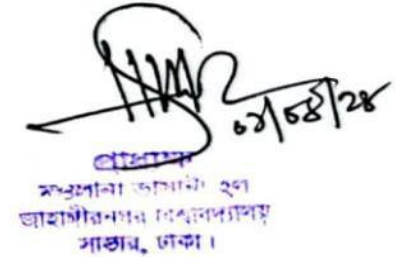 ০১/০৪/২৪
প্রাধ্যক্ষ
মওলানা ভাসানী হল
জাহাঙ্গীরনগর বিশ্ববিদ্যালয়
সাভার, ঢাকা।